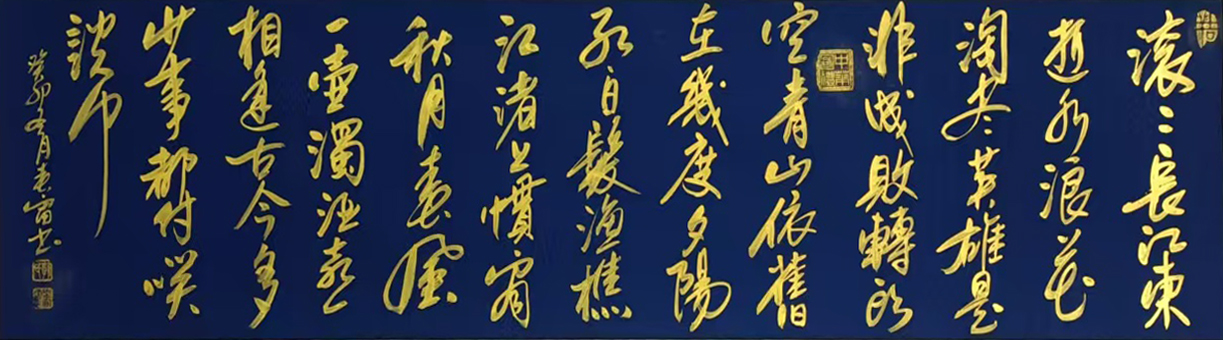 滚〻長江東
逝水浪花
淘尽英雄是
非成敗轉頭
空青山依舊
在幾度夕陽
红白髮漁樵
江渚上慣看
秋月春風
一壷濁酒喜
相逢古今多
少事都付笑
談中
癸卯冬月春富书